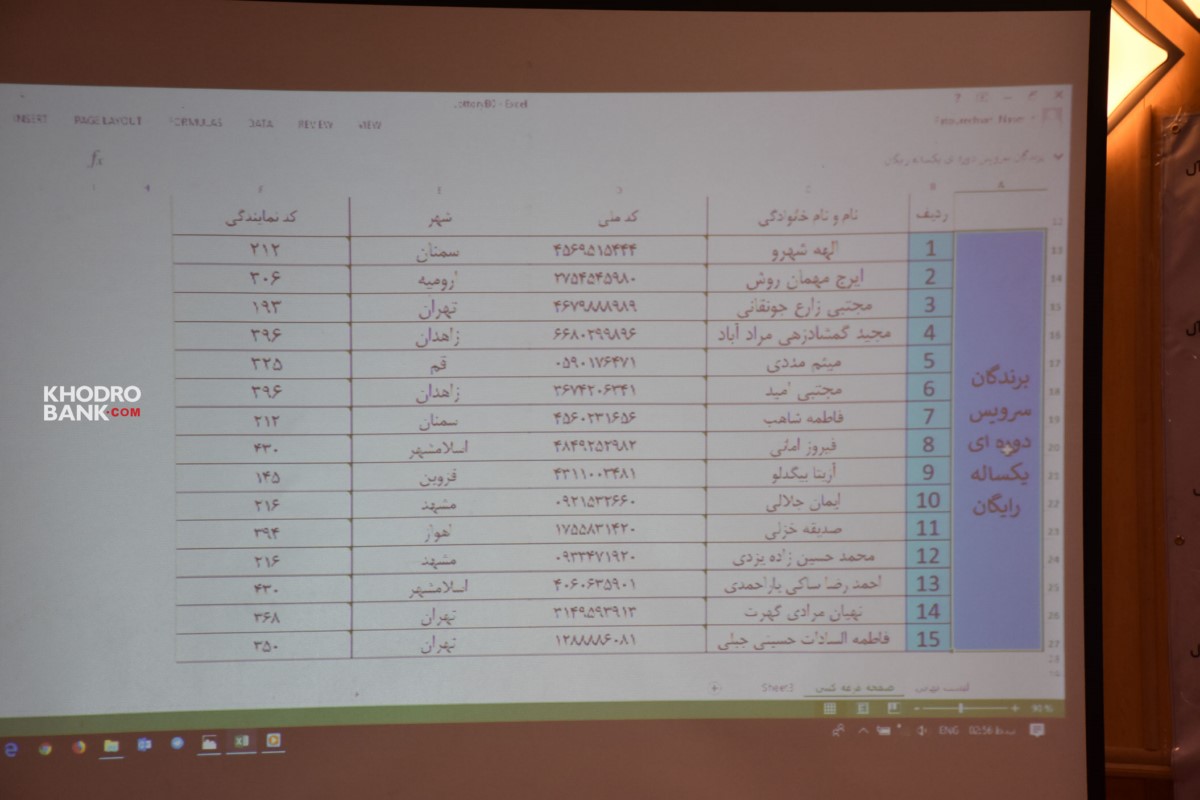 Excel
INSERT PAGE LAYOUT FORMULAS DATA REVIEW VIEW
fx
برندگان سرویس دوره ای یکساله رایگان
ردیف نام و نام خانوادگی کد ملی شهر کد نمایندگی
1 الهه شهرو ۴۵۶۹۵۱۵۴۴۴ سمنان ۲۱۲
2 ایرج مهمان روش ۲۷۵۴۵۴۵۹۸۰ ارومیه ۳۰۶
3 مجتبی زارع جونقانی ۴۶۷۹۸۸۸۹۸۹ تهران ۱۹۳
4 مجید گمشادزهی مراد آباد ۶۶۸۰۲۹۹۸۹۶ زاهدان ۳۹۶
5 میثم مددی ۰۵۹۰۱۷۶۴۷۱ قم ۳۲۵
6 مجتبی امید ۳۶۷۴۲۰۶۳۴۱ زاهدان ۳۹۶
7 فاطمه شاهب ۴۵۶۰۲۳۱۶۵۶ سمنان ۲۱۲
8 فیروز امانی ۴۸۴۹۲۵۲۹۸۲ اسلامشهر ۴۳۰
9 آریتا بیگدلو ۴۳۱۱۰۰۳۴۸۱ قزوین ۱۴۵
10 ایمان جلالی ۰۹۲۱۵۳۲۶۶۰ مشهد ۲۱۶
11 صدیقه خزلی ۱۷۵۵۸۳۱۴۲۰ اهواز ۳۹۴
12 محمد حسین زاده یزدی ۰۹۳۳۴۷۱۹۲۰ مشهد ۲۱۶
13 احمد رضا ساکی یاراحمدی ۴۰۶۰۶۳۵۹۰۱ اسلامشهر ۴۳۰
14 تهیان مرادی گهرت ۳۱۴۹۵۹۳۹۱۳ تهران ۳۶۸
15 فاطمه السادات حسینی جبلی ۱۲۸۸۸۸۶۰۸۱ تهران ۳۵۰
برندگان
سرویس
دوره ای
یکساله
رایگان
KHODRO
BANK.COM
صفحه قرعه کشی Sheet3
90 %
ENG 02:56